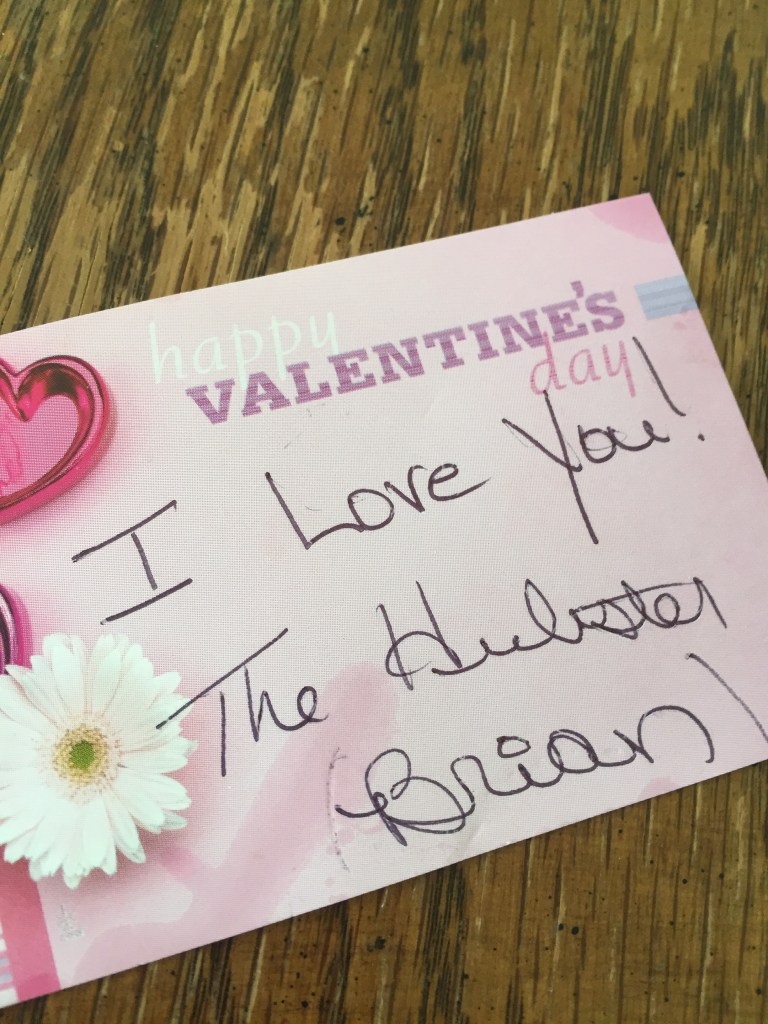 happy
VALENTINE'S
day
I Love You!
The Hubster
(Brian)